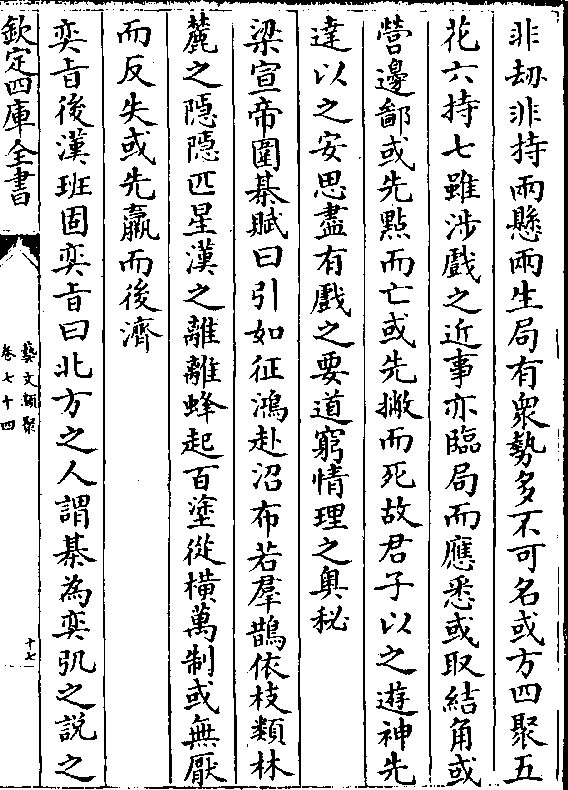 非劫非持兩懸兩生局有衆勢多不可名或方四聚五
花六持七雖涉戲之近事亦臨局而應悉或取結角或
營邊鄙或先點而亡或先撇而死故君子以之遊神先
達以之安思盡有戲之要道窮情理之奥秘
梁宣帝圍棊賦曰引如征鴻赴沼布若羣鵲依枝類林
麓之隠隠匹星漢之離離蜂起百塗從横萬制或無厭
而反失或先羸而後濟
奕㫖後漢班固奕㫖曰北方之人謂棊為奕𢎞之説之
欽定四庫全書
藝文類聚
卷七十四
十七